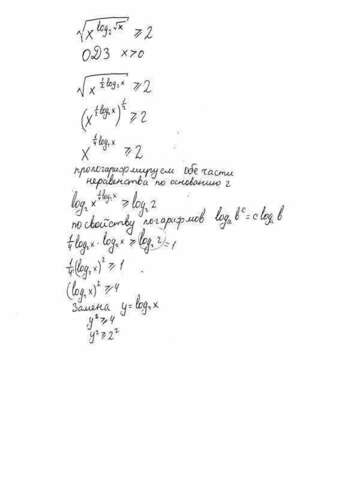 √(x^(log₂√x)) ≥ 2
ОДЗ x>0
√(x^(½log₂x)) ≥ 2
(x^(½log₂x))^½ ≥ 2
x^(¼log₂x) ≥ 2
прологарифмируем обе части
неравенства по основанию 2
log₂ x^(¼log₂x) ≥ log₂ 2
по свойству логарифмов logₐ b^c = c logₐ b
¼log₂x · log₂x ≥ log₂ 2 = 1
¼(log₂x)² ≥ 1
(log₂x)² ≥ 4
Замена y = log₂x
y² ≥ 4
y² ≥ 2²